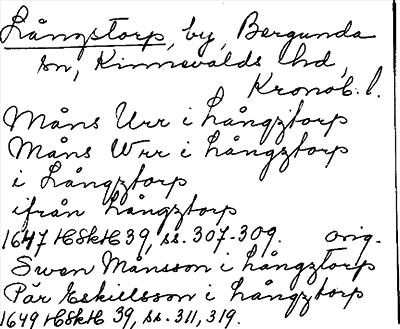 Långstorp, by, Bergunda
sn, Kinnevalds hd,
Kronob. l.
Måns Urr i Långztorp
Måns Wrr i Långztorp
i Långztorp
ifrån Långztorp
1647 HSkH 39, ss. 307-309. orig.
Swen Månsson i Långztorp
Pär Eskielsson i Långztorp
1649 HSkH 39, ss. 311, 319.